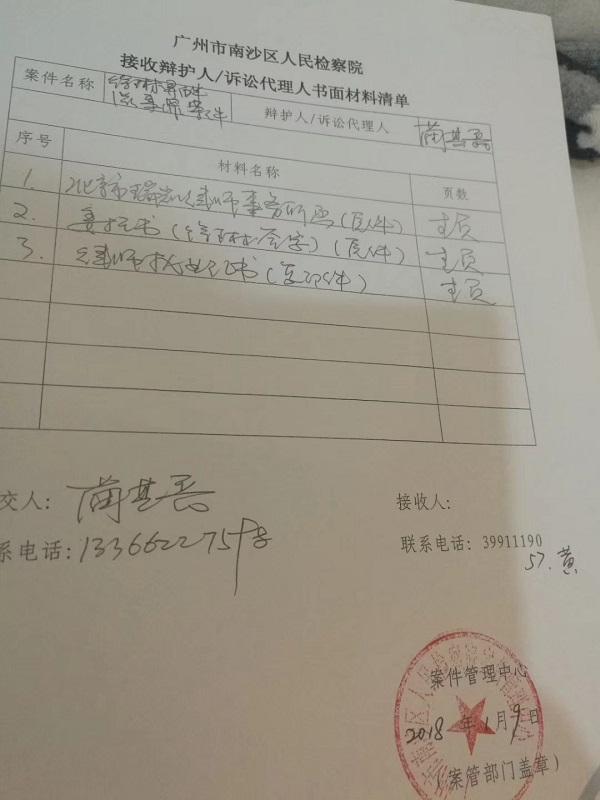 广州市南沙区人民检察院
接收辩护人/诉讼代理人书面材料清单
案件名称 徐琳 辩护人/诉讼代理人 蔺其磊
序号 材料名称 页数
1. 北京市瑞凯律师事务所函(原件) 1页
2. 委托书(徐琳签字)(原件) 1页
3. 律师执业证书(复印件) 1页
交人: 蔺其磊 接收人:
系电话: 联系电话: 39911190
57.黄
案件管理中心
2018年1月9日
(案管部门盖章)